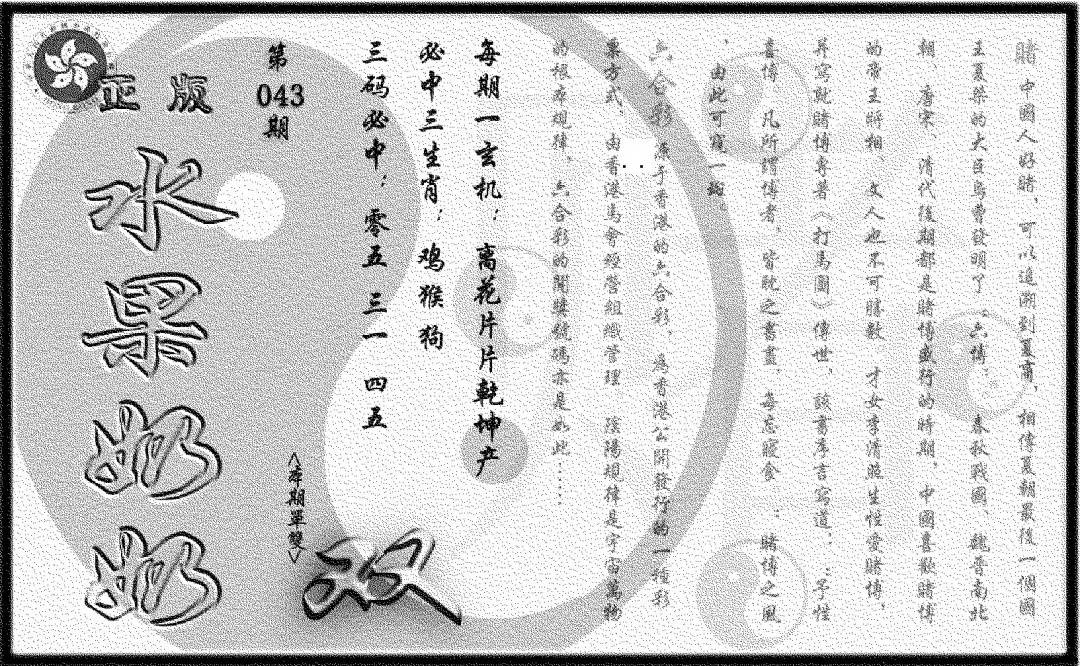 賭中國人好賭，可以追溯到夏商，相傳夏朝最後一個國
王夏桀的大臣烏曹發明了；六博。 春秋戰國、魏晉南北
朝、唐宋、清代後期都是賭博盛行的時期，中國喜歡賭博
的帝王將相 文人也不可勝數 才女李清照生性愛賭博，
并寫就賭博專著《打馬圖》傳世，該書序言寫道：：予性
喜博，凡所謂博者，皆耽之晝，每忘寢食 ：賭博之風
、由此可窺一斑。
六合彩源于香港的六合彩，為香港公開發行的一種彩
票方式，由香港馬會經營組織管理 陰陽規律是宇宙萬物
的根本規律，六合彩的開獎號碼亦是如此……
每期一玄机：离花片片乾坤产
必中三生肖：鸡猴狗
三码必中：零五 三一 四五
第
043
期
正版
水果奶奶
<本期單雙>
双